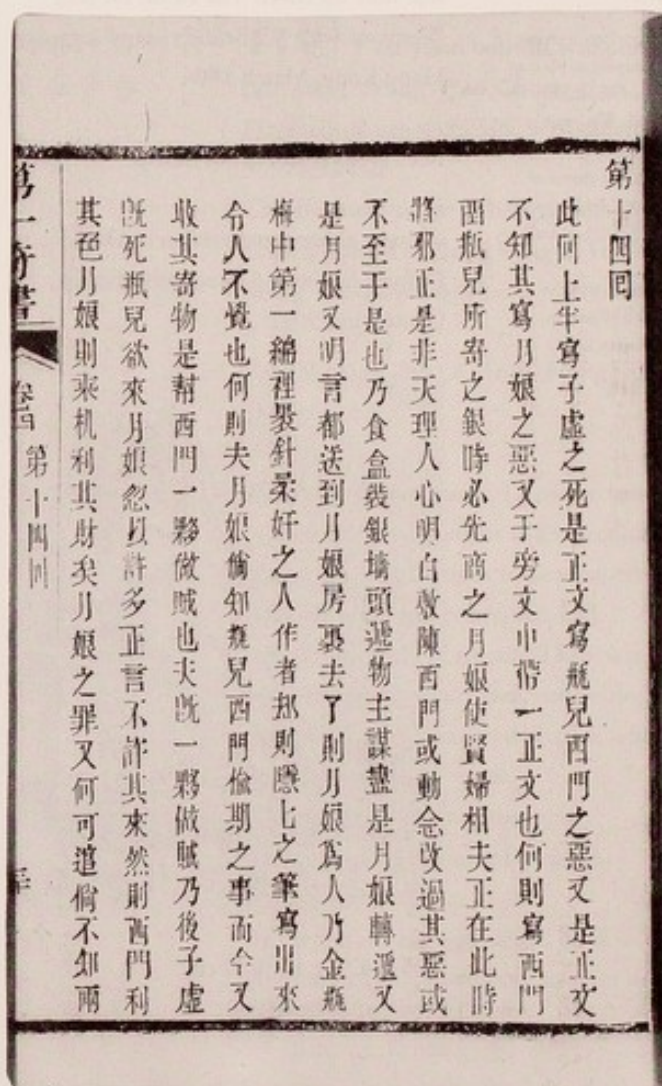 第十四回
此回上半寫子虛之死是正文寫瓶兒西門之惡又是正文
不知其寫月娘之惡又于旁文中帶一正文也何則寫西門
西瓶兒所寄之銀時必先商之月娘使賢婦相夫正在此時
將邪正是非天理人心明白敷陳西門或動念改過其惡或
不至于是也乃食盒裝銀墻頭遞物主謀盡是月娘轉遞又
是月娘又明言都送到月娘房裏去了則月娘爲人乃金瓶
梅中第一綿裡裹針柔奸之人作者却則隱匕之筆寫出來
令人不覺也何則夫月娘倘知瓶兒西門偷期之事而今又
收其寄物是幫西門一夥做賊也夫既一夥做賊乃後子虛
既死瓶兒欲來月娘忽以許多正言不許其來然則西門利
其色月娘則乘机利其財矣月娘之罪又何可逭倘不知兩
第一奇書
卷四
第十四回